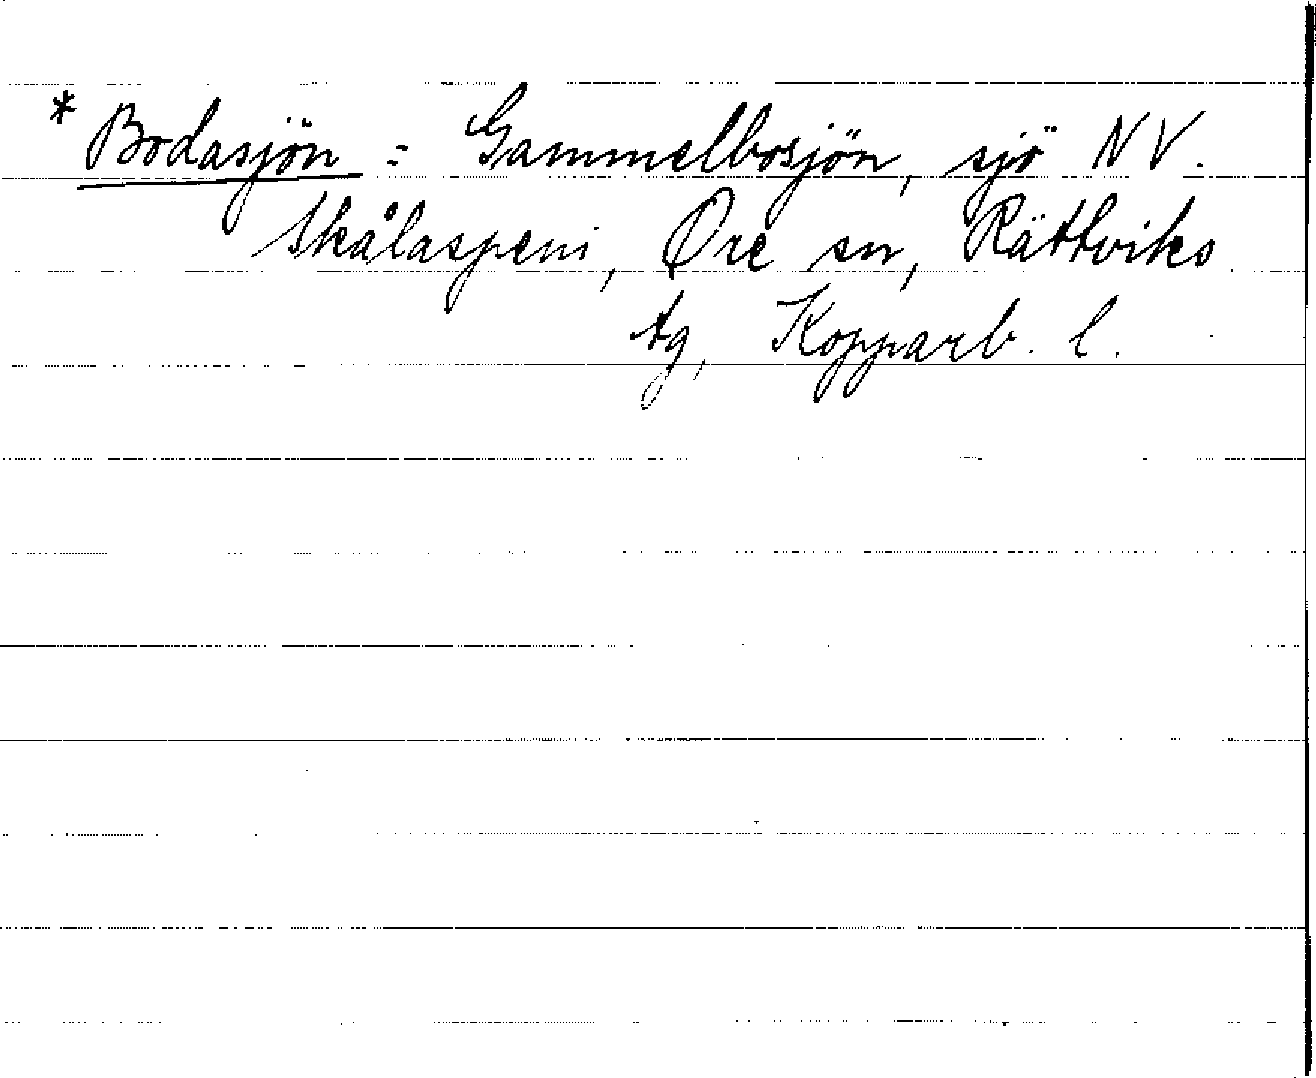 * Bodasjön = Gammelbosjön, sjö NV.
Skålaspeni, Ore sn, Rättviks
tg, Kopparb. l.